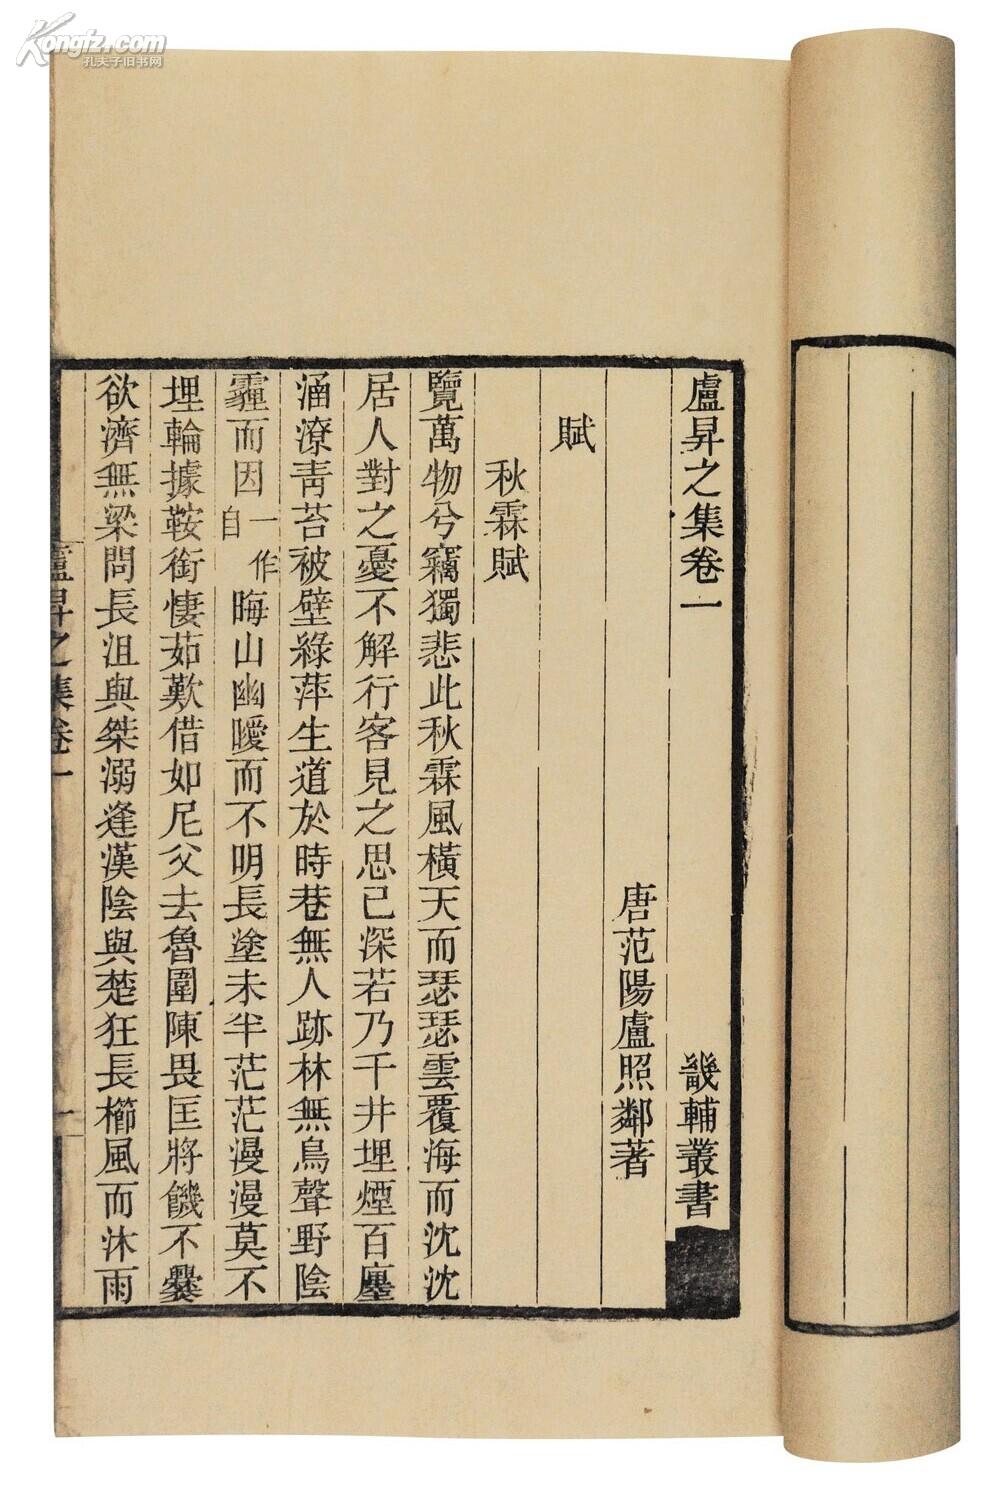 Kongfz.com
孔夫子旧书网
盧昇之集卷一
畿輔叢書
唐范陽盧照鄰著
賦
秋霖賦
覽萬物兮竊獨悲此秋霖風橫天而瑟瑟雲覆海而沈沈
居人對之憂不解行客見之思已深若乃千井埋煙百廛
涵潦青苔被壁綠萍生道於時巷無人跡林無鳥聲野陰
霾而因一作自晦山幽曖而不明長塗未半茫茫漫漫莫不
埋輪據鞍銜悽茹歎借如尼父去魯圍陳畏匡將饑不爨
欲濟無梁問長沮與桀溺逢漢陰與楚狂長櫛風而沐雨
盧昇之集卷一
一